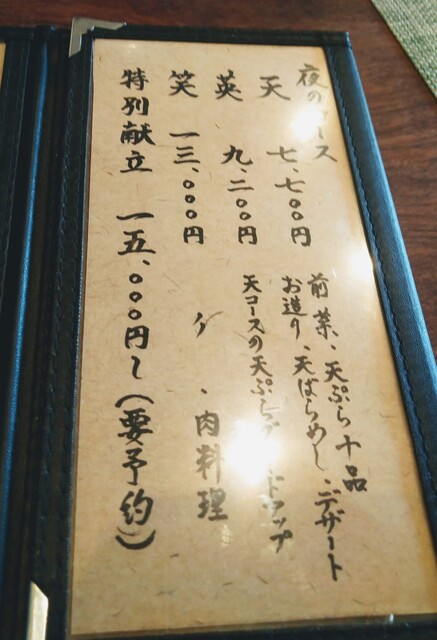 夜のコース
天 七、七〇〇円
前菜、天ぷら十品
お造り、天ばらめし、デザート
英 九、二〇〇円
天コースの天ぷらグレードアップ
笑 一三、〇〇〇円
〃、肉料理
特別献立 一五、〇〇〇円～(要予約)